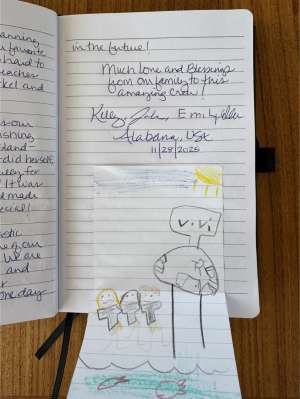 anning
favorite
hard to
eacher
kel and
our
shing
tand-
did herself
ey for
! It was
d made
ecial!
stic
e our
We are
and
r
one day
in the future!
Much Love and Blessings
from our family to this
amazing Crew!
Kelly, Emily
Alabama, USA
11/28/2025
ViVi